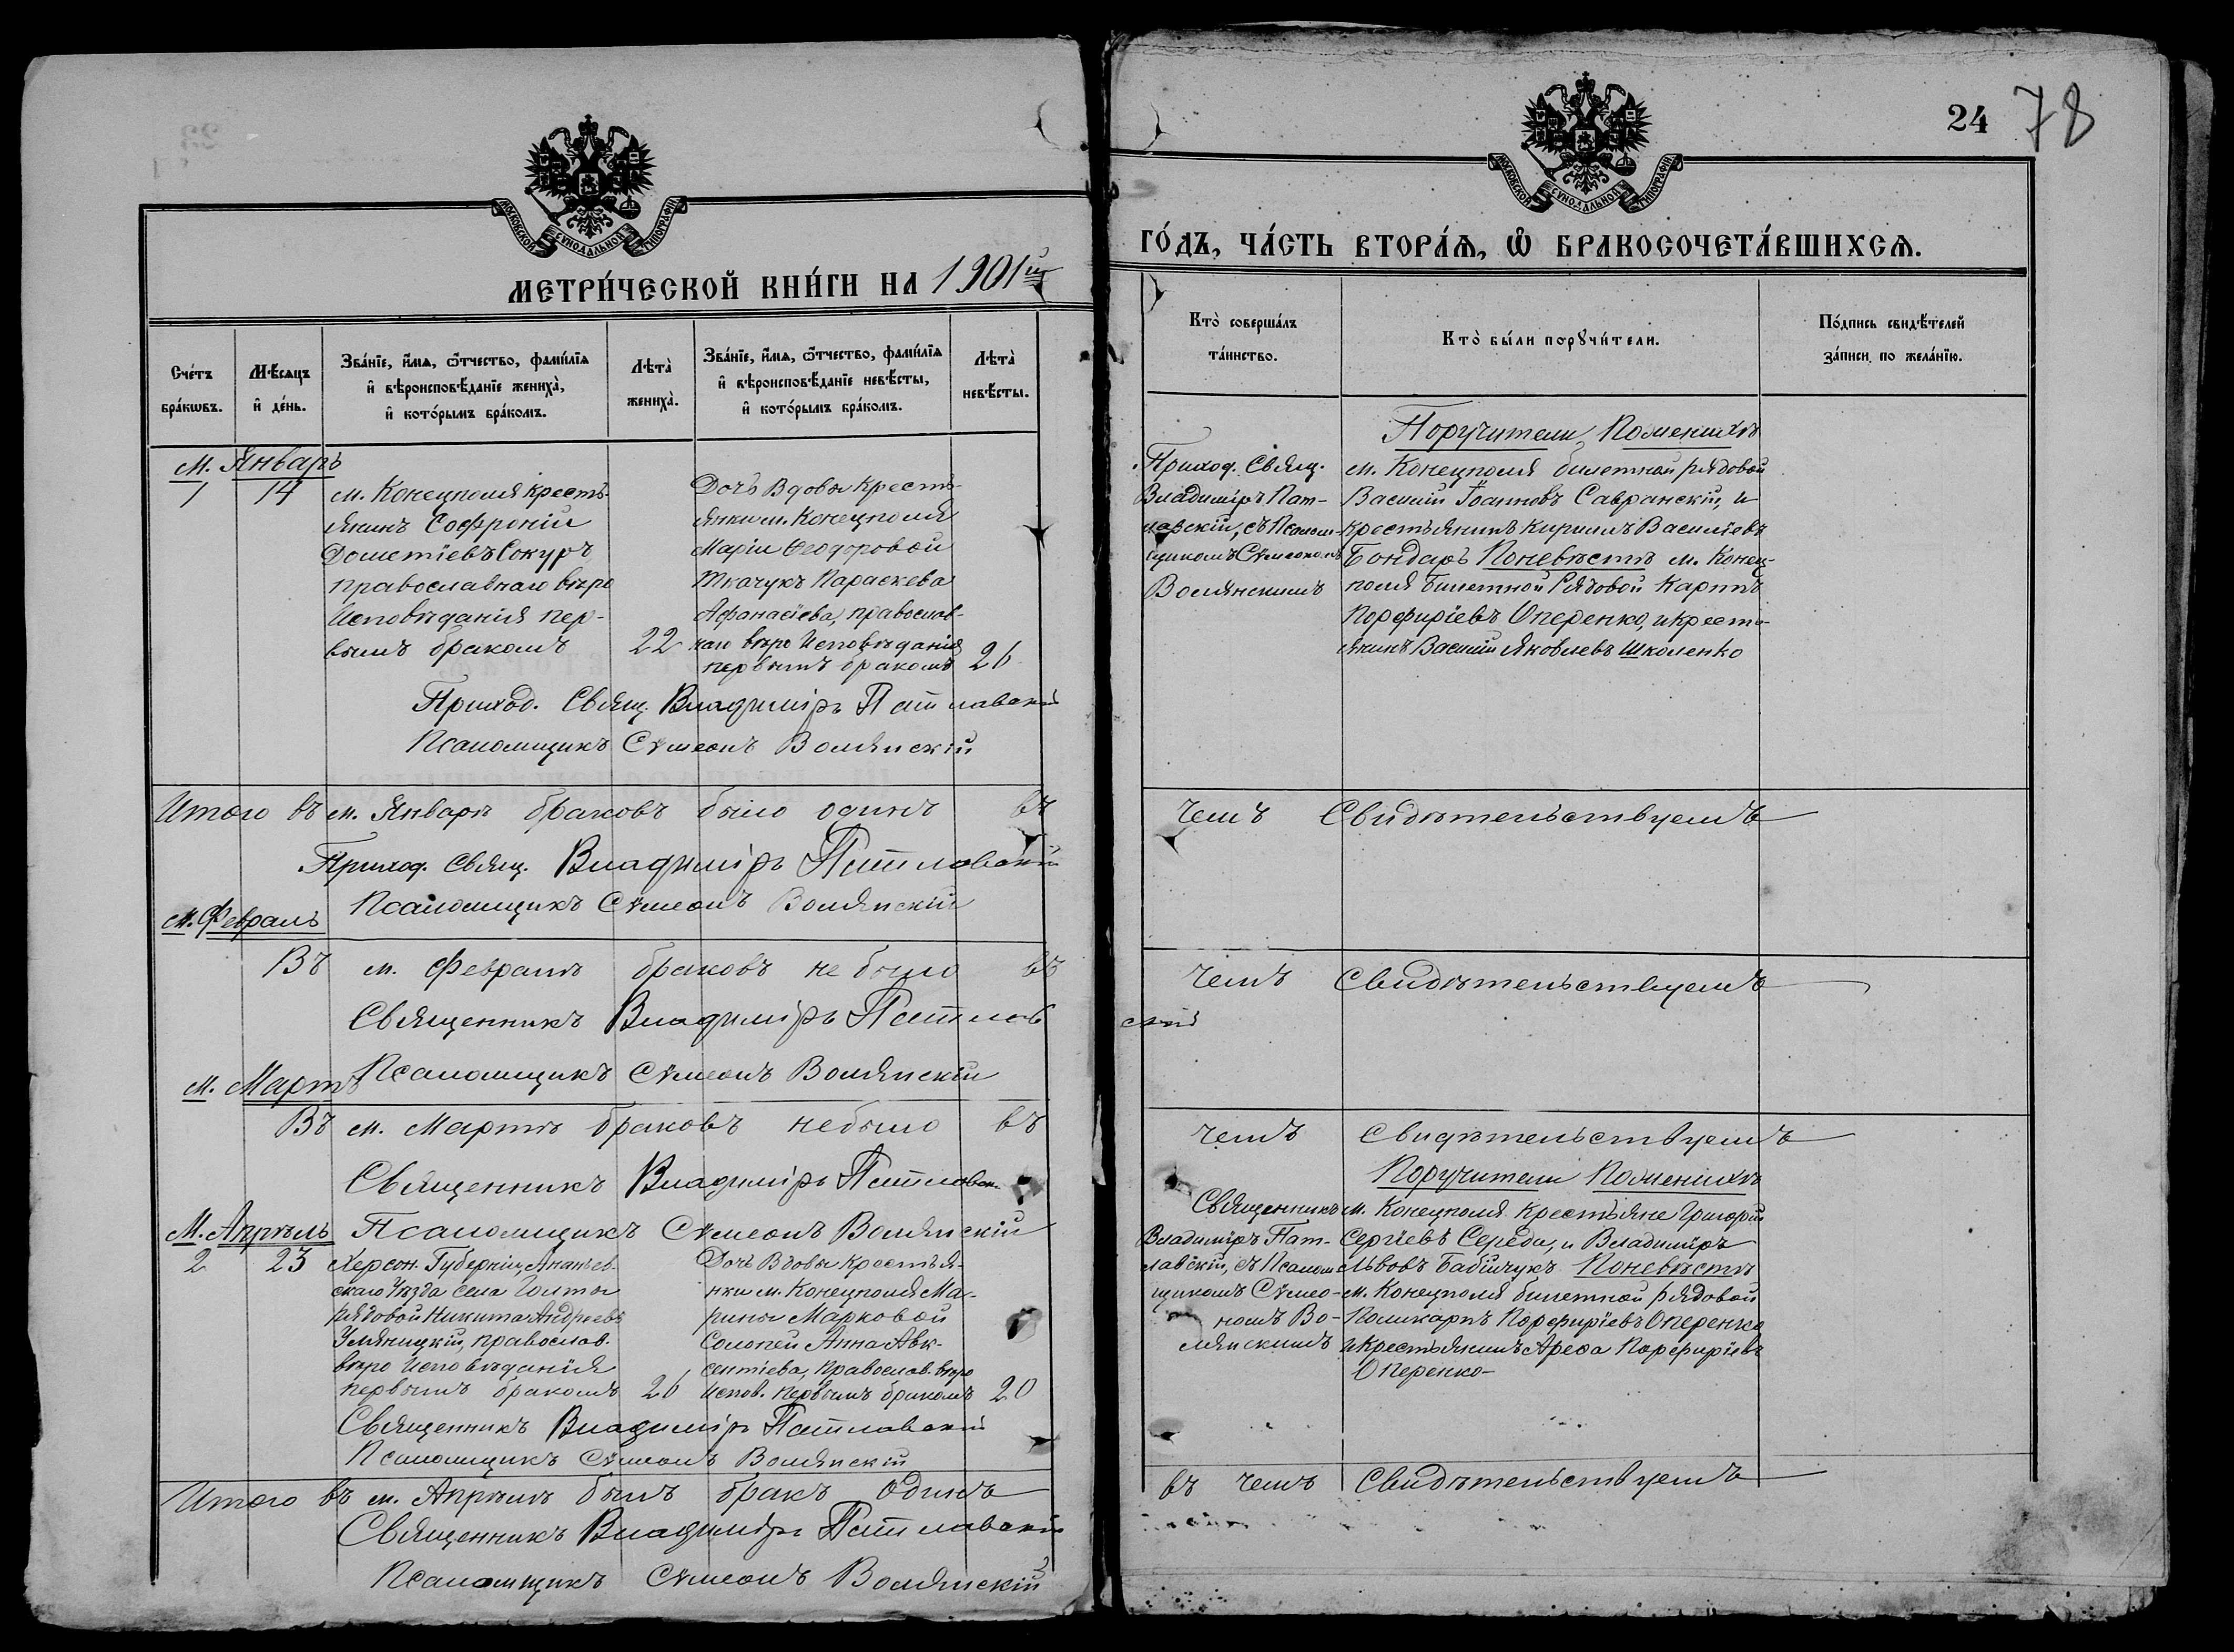 МОСКОВСКОЙ СѴНОДАЛЬНОЙ ТИПОГРАФІИ
МЕТРИ́ЧЕСКОЙ КНИ́ГИ НА 1901й
Сче́тъ бра́кѡвъ.
Мѣ́сяцъ и҆ де́нь.
Зва́нїе, и҆́мѧ, ѻ҆́тчество, фамѝлїѧ
и҆ вѣроисповѣ́данїе женихà,
и҆ кото́рымъ бра́комъ.
Лѣтà женихà.
Зва́нїе, и҆́мѧ, ѻ҆́тчество, фамѝлїѧ
и҆ вѣроисповѣ́данїе невѣ́сты,
и҆ кото́рымъ бра́комъ.
Лѣтà невѣ́сты.
м. Январь
1 14
м. Конецполя кресть-
янинъ Софроній
Дометіевъ Сокуръ,
православнаго вѣро
Исповѣданія пер-
вымъ бракомъ
22
Дочь Вдовы Кресть-
янки м. Конецполя
Маріи Ѳеодоровой
Ткачукъ Параскева
Афанасіева, православ-
наго вѣро Исповѣданія
первымъ бракомъ
26
Приход. Свящ. Владиміръ Патлавскій
Псаломщикъ Сѵмеонъ Волянскій
Итого въ м. Январѣ браковъ было одинъ въ
Приход. Свящ. Владиміръ Патлавскій
Псаломщикъ Сѵмеонъ Волянскій
м. Февраль
Въ м. Февралѣ браковъ не было въ
Священникъ Владиміръ Патлав
Псаломщикъ Сѵмеонъ Волянскій
м. Мартъ
Въ м. Мартѣ браковъ небыло въ
Священникъ Владиміръ Патлавск
Псаломщикъ Сѵмеонъ Волянскій
М. Апрѣль
2 23
Херсон. Губерніи, Ананьев-
скаго Уѣзда села Голты
рядовой Никита Андреевъ
Уляницкій, православ.
вѣро Исповѣданія
первымъ бракомъ
26
Дочь Вдовы Крестья-
нки м. Конецполя Ма-
рины Марковой
Солопей Анна Авк-
сентіева, Православ. вѣро
Испов. первымъ бракомъ
20
Священникъ Владиміръ Патлавскій
Псаломщикъ Сѵмеонъ Волянскій
Итого въ м. Апрѣлѣ былъ бракъ Одинъ
Священникъ Владиміръ Патлавскій
Псаломщикъ Сѵмеонъ Волянскій
24 78
МОСКОВСКОЙ СѴНОДАЛЬНОЙ ТИПОГРАФІИ
ГО́ДЪ, ЧА́СТЬ ВТОРА́Ѧ, Ѽ БРАКОСОЧЕТА́ВШИХСѦ.
Ктò соверша́лъ та́инство.
Ктò бы́ли порꙋчи́тели.
По́дпись свидѣ́телей за́писи по жела́нїю.
Приход. Свящ.
Владиміръ Пат-
лавскій, съ Псалом-
щикомъ Сѵмеономъ
Волянскимъ
Поручители Поженихѣ
м. Конецполя билетной рядовой
Василій Іоанновъ Савранскій, и
крестьянинъ Кириллъ Василіевъ
Бондарь Поневѣстѣ м. Конец-
поля билетной Рядовой Карпъ
Порфиріевъ Оперенко, и кресть-
янинъ Василій Яковлевъ Школенко
чемъ Свидѣтельствуемъ
чемъ Свидѣтельствуемъ
скій
чемъ Свидѣтельствуемъ
Поручители Поженихѣ
Священникъ
Владиміръ Пат-
лавскій, съ Псалом
щикомъ Сѵмео-
номъ Во-
лянскимъ
м. Конецполя Крестьяне Григорій
Сергіевъ Середа, и Владиміръ
Львовъ Бабійчукъ Поневѣстѣ
м. Конецполя билетной рядовой
Поликарпъ Порфиріевъ Оперенко
и Крестьянинъ Арефа Порфиріевъ
Оперенко
въ чемъ Свидѣтельствуемъ